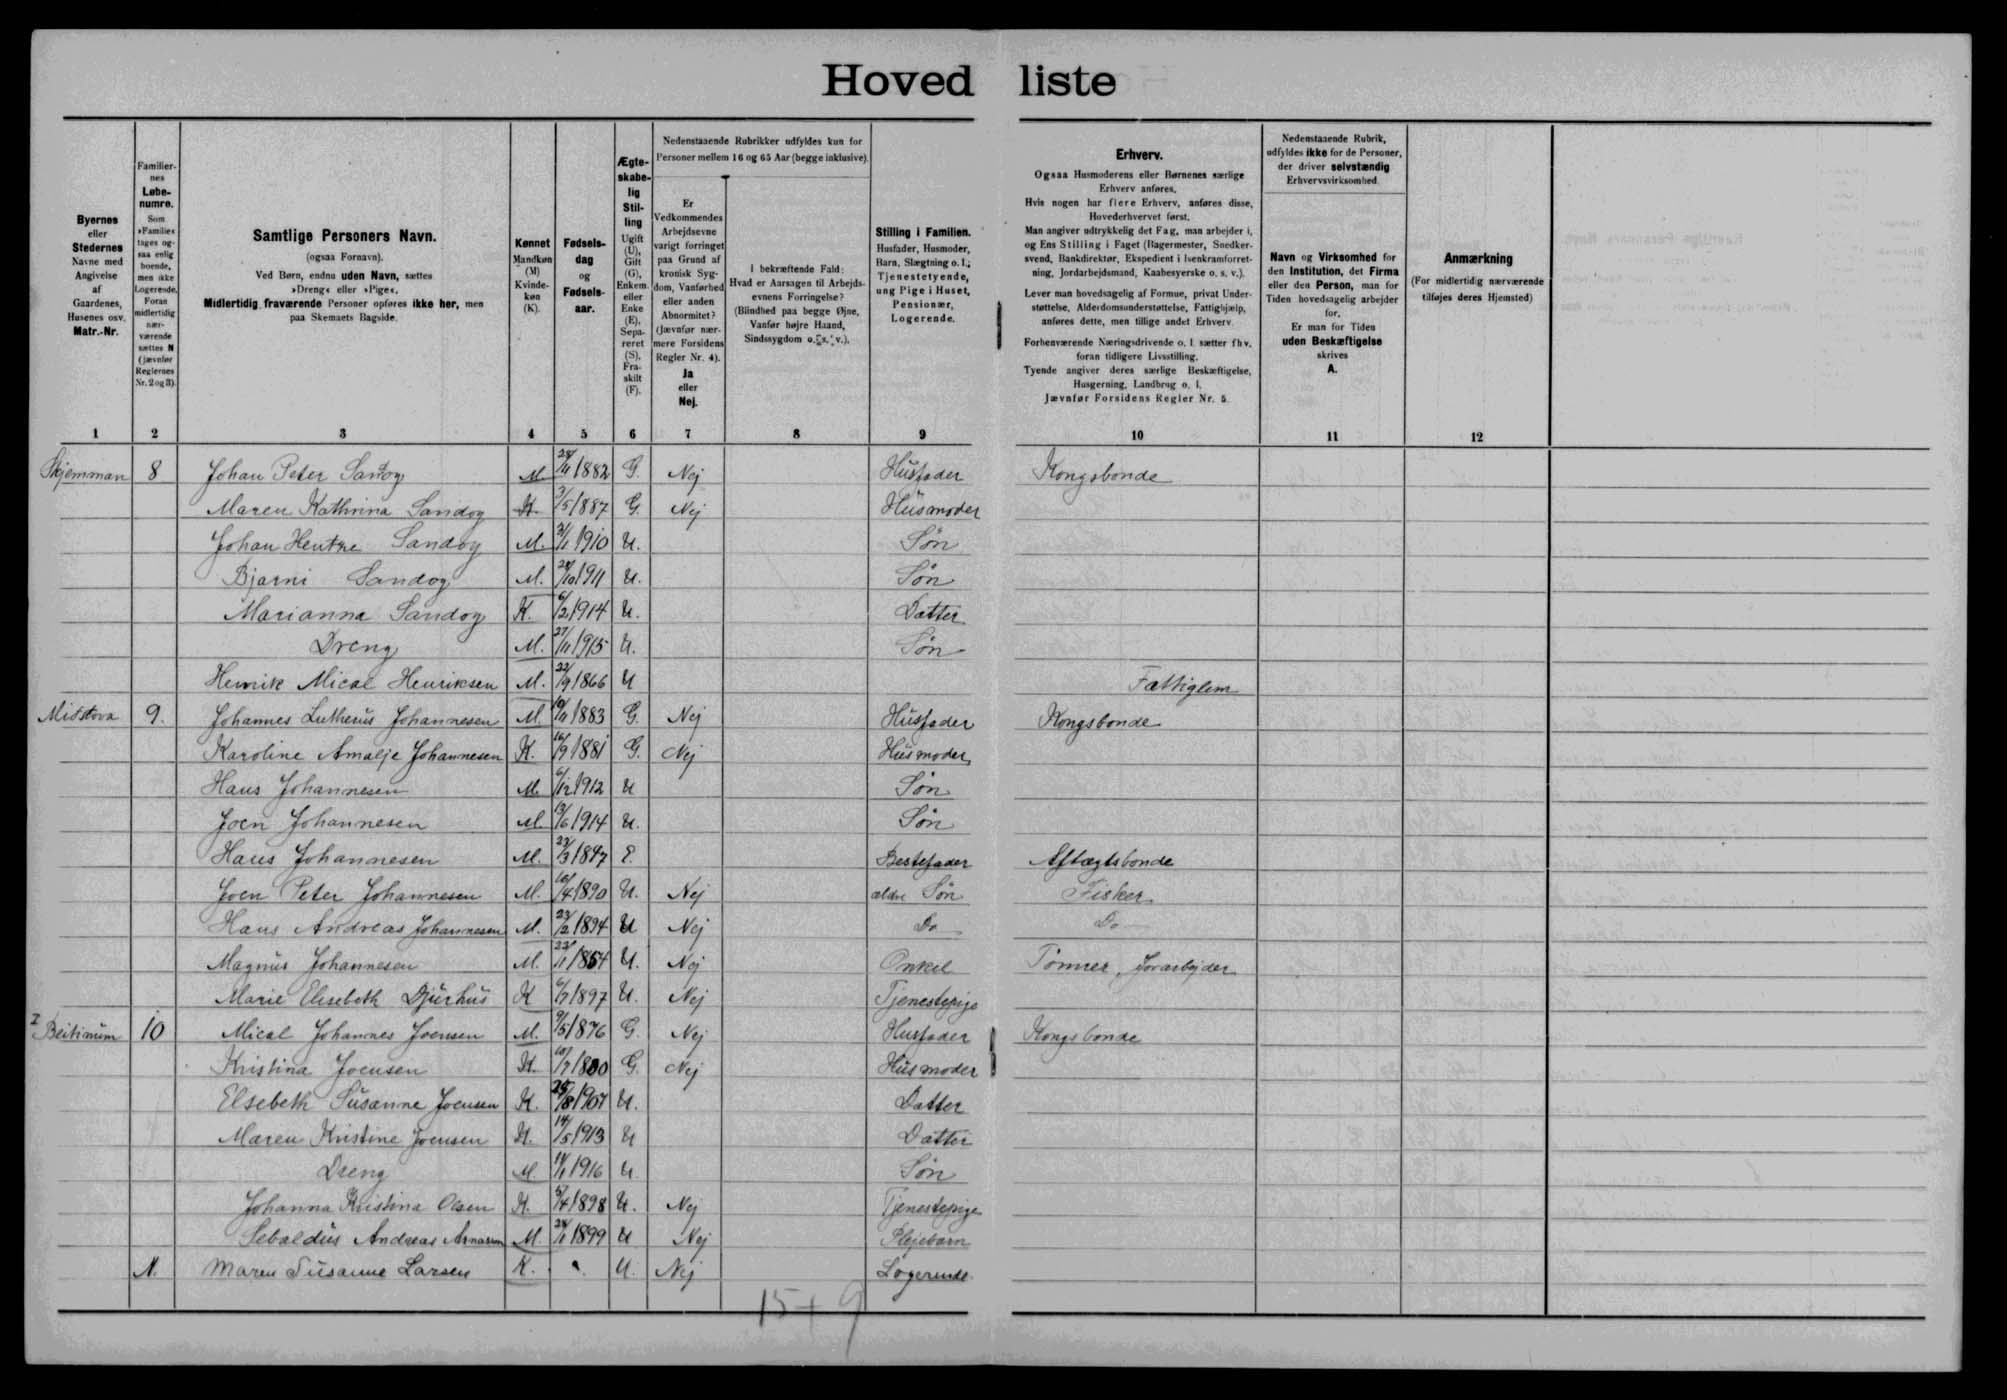 Hoved liste
Byernes eller Stedernes Navne med Angivelse af Gaardenes, Husenes osv. Matr.-Nr.
Familiernes Løbenumre. Som »Familie« tages ogsaa enlig boende, men ikke Logerende. Foran midlertidig nærværende sættes N (jævnfør Reglernes Nr. 2 og 3).
Samtlige Personers Navn. (ogsaa Fornavn). Ved Børn, endnu uden Navn, sættes »Dreng« eller »Pige«. Midlertidig fraværende Personer opføres ikke her, men paa Skemaets Bagside.
Kønnet Mandkøn (M) Kvindekøn (K).
Fødselsdag og Fødselsaar.
Ægteskabelig Stilling Ugift (U), Gift (G), Enkem. eller Enke (E), Separeret (S), Fraskilt (F).
Nedenstaaende Rubrikker udfyldes kun for Personer mellem 16 og 65 Aar (begge inklusive).
Er Vedkommendes Arbejdsevne varigt forringet paa Grund af kronisk Sygdom, Vanførhed eller anden Abnormitet? (Jævnfør nærmere Forsidens Regler Nr. 4). Ja eller Nej.
I bekræftende Fald: Hvad er Aarsagen til Arbejdsevnens Forringelse? (Blindhed paa begge Øjne, Vanfør højre Haand, Sindssygdom o. s. v.).
Stilling i Familien. Husfader, Husmoder, Barn, Slægtning o. l.; Tjenestetyende, ung Pige i Huset, Pensionær, Logerende.
Erhverv.
Ogsaa Husmoderens eller Børnenes særlige Erhverv anføres.
Hvis nogen har flere Erhverv, anføres disse, Hovederhvervet først.
Man angiver udtrykkelig det Fag, man arbejder i, og Ens Stilling i Faget (Bagermester, Snedkersvend, Bankdirektør, Ekspedient i Isenkramforretning, Jordarbejdsmand, Kaabesyerske o. s. v.).
Lever man hovedsagelig af Formue, privat Understøttelse, Alderdomsunderstøttelse, Fattighjælp, anføres dette, men tillige andet Erhverv.
Forhenværende Næringsdrivende o. l. sætter fhv. foran tidligere Livsstilling.
Tyende angiver deres særlige Beskæftigelse, Husgerning, Landbrug o. l.
Jævnfør Forsidens Regler Nr. 5.
Nedenstaaende Rubrik, udfyldes ikke for de Personer, der driver selvstændig Erhvervsvirksomhed.
Navn og Virksomhed for den Institution, det Firma eller den Person, man for Tiden hovedsagelig arbejder for. Er man for Tiden uden Beskæftigelse skrives A.
Anmærkning (For midlertidig nærværende tilføjes deres Hjemsted)
1 2 3 4 5 6 7 8 9 10 11 12
Skjemman 8 Johan Peter Sandoy M. 28/11 1882 G. Nej Husfader Kongsbonde
Maren Kathrina Sandoy K. 3/5 1887 G. Nej Husmoder
Johan Hentze Sandoy M. 21/1 1910 U. Søn
Bjarni Sandoy M. 28/10 1911 U. Søn
Marianna Sandoy K. 6/2 1914 U. Datter
Dreng M. 27/11 1915 U. Søn
Henrik Mical Henriksen M. 22/9 1866 U Fattiglem
Midstova 9. Johannes Lutherus Johannesen M. 10/11 1883 G. Nej Husfader Kongsbonde
Karoline Amalje Johannesen K. 16/9 1881 G. Nej Husmoder
Hans Johannesen M. 6/12 1912 U Søn
Joen Johannesen M. 13/6 1914 U. Søn
Hans Johannesen M. 23/3 1847 E. Bestefader Aftægtsbonde
Joen Peter Johannesen M. 10/4 1890 U. Nej ældre Søn Fisker
Hans Andreas Johannesen M. 23/2 1894 U Nej Do Do
Magnus Johannesen M. 22/11 1854 U. Nej Onkel Tømrer, Jorarbejder
Marie Elisebeth Djurhus K 6/7 1897 U. Nej Tjenestepige
I Beitinum 10 Mical Johannes Joensen M. 9/5 1876 G. Nej Husfader Kongsbonde
Kristina Joensen K. 10/7 1880 G. Nej Husmoder
Elsebeth Susanne Joensen K. 25/8 1907 U. Datter
Maren Kristine Joensen K. 14/5 1913 U Datter
Dreng M. 11/1 1916 U. Søn
Johanna Kristina Olsen K. 5/4 1898 U. Nej Tjenestepige
Sebaldus Andreas Arnason M. 28/1 1899 U Nej Plejebarn
N. Maren Susanne Larsen K. U. Nej Logerende
15 + 9